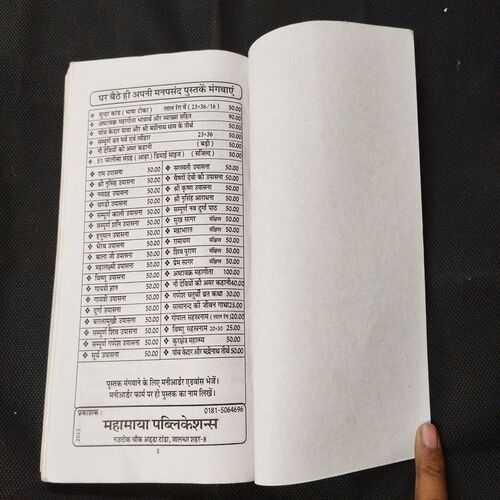 घर बैठे ही अपनी मनपसंद पुस्तकें मंगवाएं
❖ सुन्दर कांड ( भाषा टीका) लाल रंग में ( 23×36/16) 50.00
❖ अष्टावक्र महागीता भावार्थ और व्याख्या सहित 90.00
❖ पाँच केदार यात्रा और श्री बद्रीनाथ धाम के तीर्थ 50.00
❖ सम्पूर्ण व्रत पर्व एवं त्यौहार 23×36 50.00
❖ नौ देवियों की अमर कहानी (बड़ी) 50.00
❖ 51 चालीसा संग्रह (आड़ा) डिमाई साइज ) ( सजिल्द ) 50.00
❖ राम उपासना 50.00
❖ श्री नृसिंह उपासना 50.00
❖ नवग्रह उपासना 50.00
❖ चण्डी उपासना 50.00
❖ सम्पूर्ण काली उपासना 50.00
❖ सम्पूर्ण शनि उपासना 50.00
❖ हनुमान उपासना 50.00
❖ भैरव उपासना 50.00
❖ बाला जी उपासना 50.00
❖ महालक्ष्मी उपासना 50.00
❖ विष्णु उपासना 50.00
❖ गायत्री ज्ञान 50.00
❖ गायत्री उपासना 50.00
❖ दुर्गा उपासना 50.00
❖ बगलामुखी उपासना 50.00
❖ सम्पूर्ण शिव उपासना 50.00
❖ सम्पूर्ण गणेश उपासना 50.00
❖ सूर्य उपासना 50.00
❖ सरस्वती उपासना 50.00
❖ वैष्णों देवी की उपासना 50.00
❖ श्री कृष्ण उपासना 50.00
❖ श्री नृसिंह आराधना 50.00
❖ सम्पूर्ण नव दुर्गा पाठ 50.00
❖ सुख सागर संक्षिप्त 50.00
❖ महाभारत संक्षिप्त 50.00
❖ रामायण संक्षिप्त 50.00
❖ शिव पुराण संक्षिप्त 50.00
❖ प्रेम सागर संक्षिप्त 50.00
❖ अष्टावक्र महागीता 100.00
❖ नौ देवियों की अमर कहानी 40.00
❖ गणेश चतुर्थी व्रत कथा 30.00
❖ सत्यानन्द की जीवन गाथा 25.00
❖ गोपाल सहस्त्रनाम (लाल रंग ) 20.00
❖ विष्णु सहस्त्रनाम 20×30 25.00
❖ कुरुक्षेत्र महात्मय 50.00
❖ पाँच केदार और बद्रीनाथ तीर्थ 50.00
पुस्तक मंगवाने के लिए मनीआर्डर एडवांस भेजें।
मनीआर्डर फार्म पर ही पुस्तक का नाम लिखें।
प्रकाशक : 0181-5064696
महामाया पब्लिकेशन्स
नजदीक चौंक अड्डा टांडा, जालन्धर शहर-8
2012